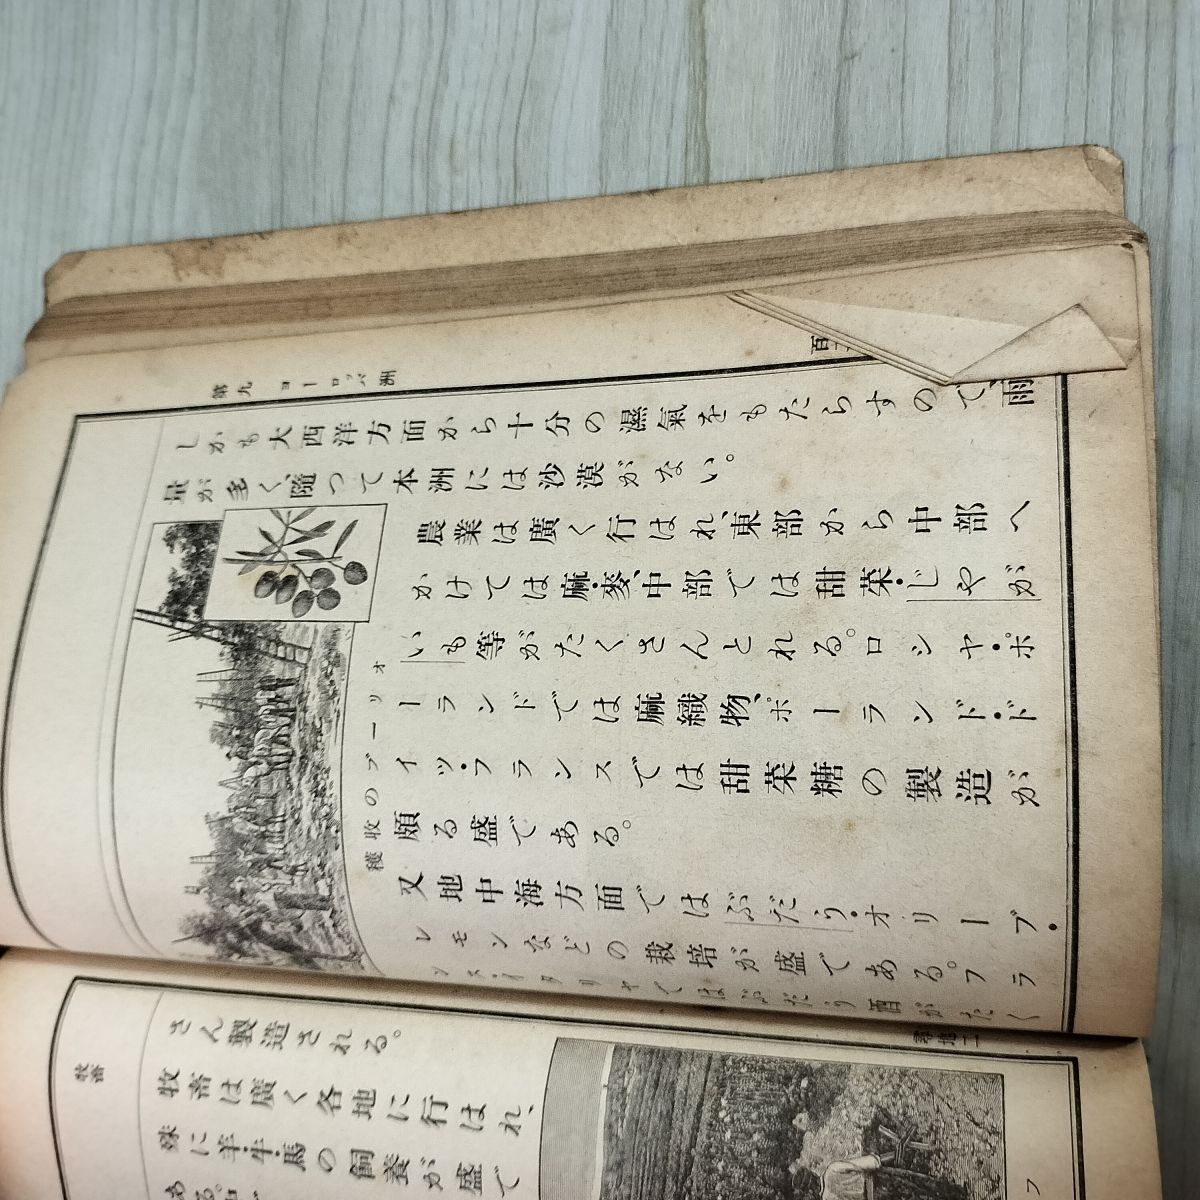 第九 ヨーロッパ洲
しかも大西洋方面から十分の濕氣をもたらすので、雨
量が多く、隨つて本洲には沙漠がない。
農業は廣く行はれ、東部から中部へ
かけては麻・麥、中部では甜菜・じやが
いも等がたくさんとれる。ロシヤ・ポ
ーランドでは麻織物、ポーランド・ド
イツ・フランスでは甜菜糖の製造が
頗る盛である。
又地中海方面ではぶだう・オリーブ・
レモンなどの栽培が盛である。フラ
ンス・イタリヤではぶだう酒がたく
オリーブの收穫
尋地二
さん製造される。
牧畜
牧畜は廣く各地に行はれ、
殊に羊・牛・馬の飼養が盛で
ある。